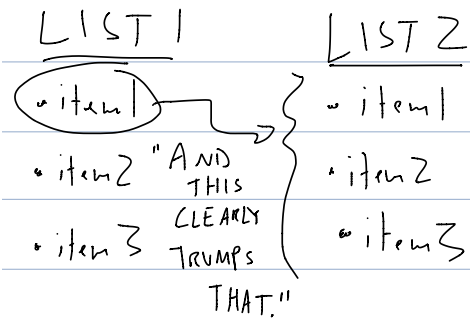 LIST 1
• item1
• item2
• item3
"AND
THIS
CLEARLY
TRUMPS
THAT."
LIST 2
• item1
• item2
• item3